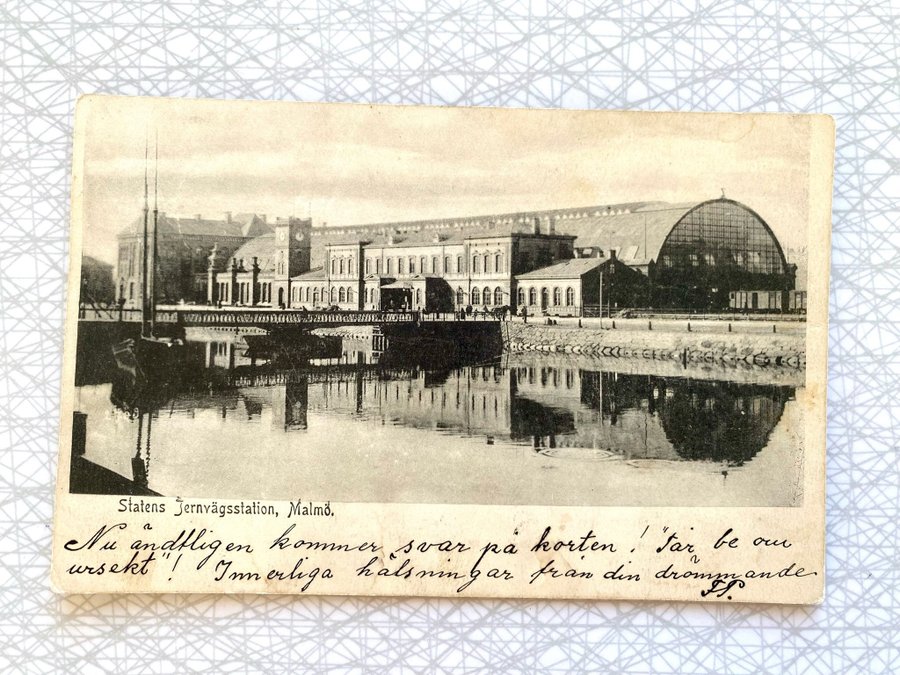 Statens Jernvägsstation, Malmö.
Nu ändtligen kommer svar på korten! "Får be om
ursekt"! Innerliga hälsningar från din drömmande